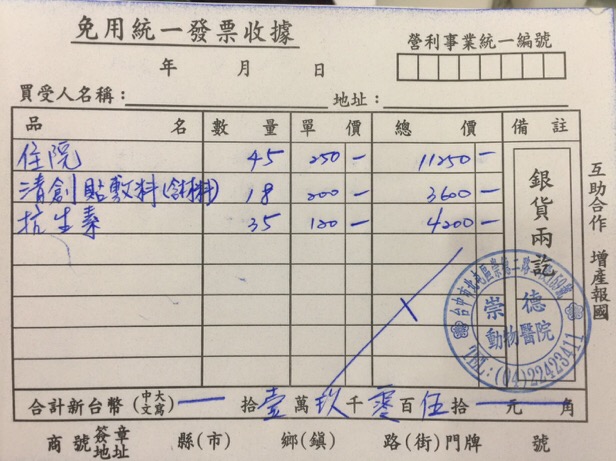 免用統一發票收據
營利事業統一編號
年 月 日
買受人名稱： 地址：
品 名 數 量 單 價 總 價 備 註
住院 45 250- 11250-
清創貼敷料(含材料) 18 200- 3600-
抗生素 35 120- 4200-
銀貨兩訖
互助合作 增產報國
崇德
動物醫院
TEL:(04)22423411
合計新台幣(中文大寫) 拾壹萬玖千零百伍拾 元 角
商號簽章地址 縣(市) 鄉(鎮) 路(街)門牌 號